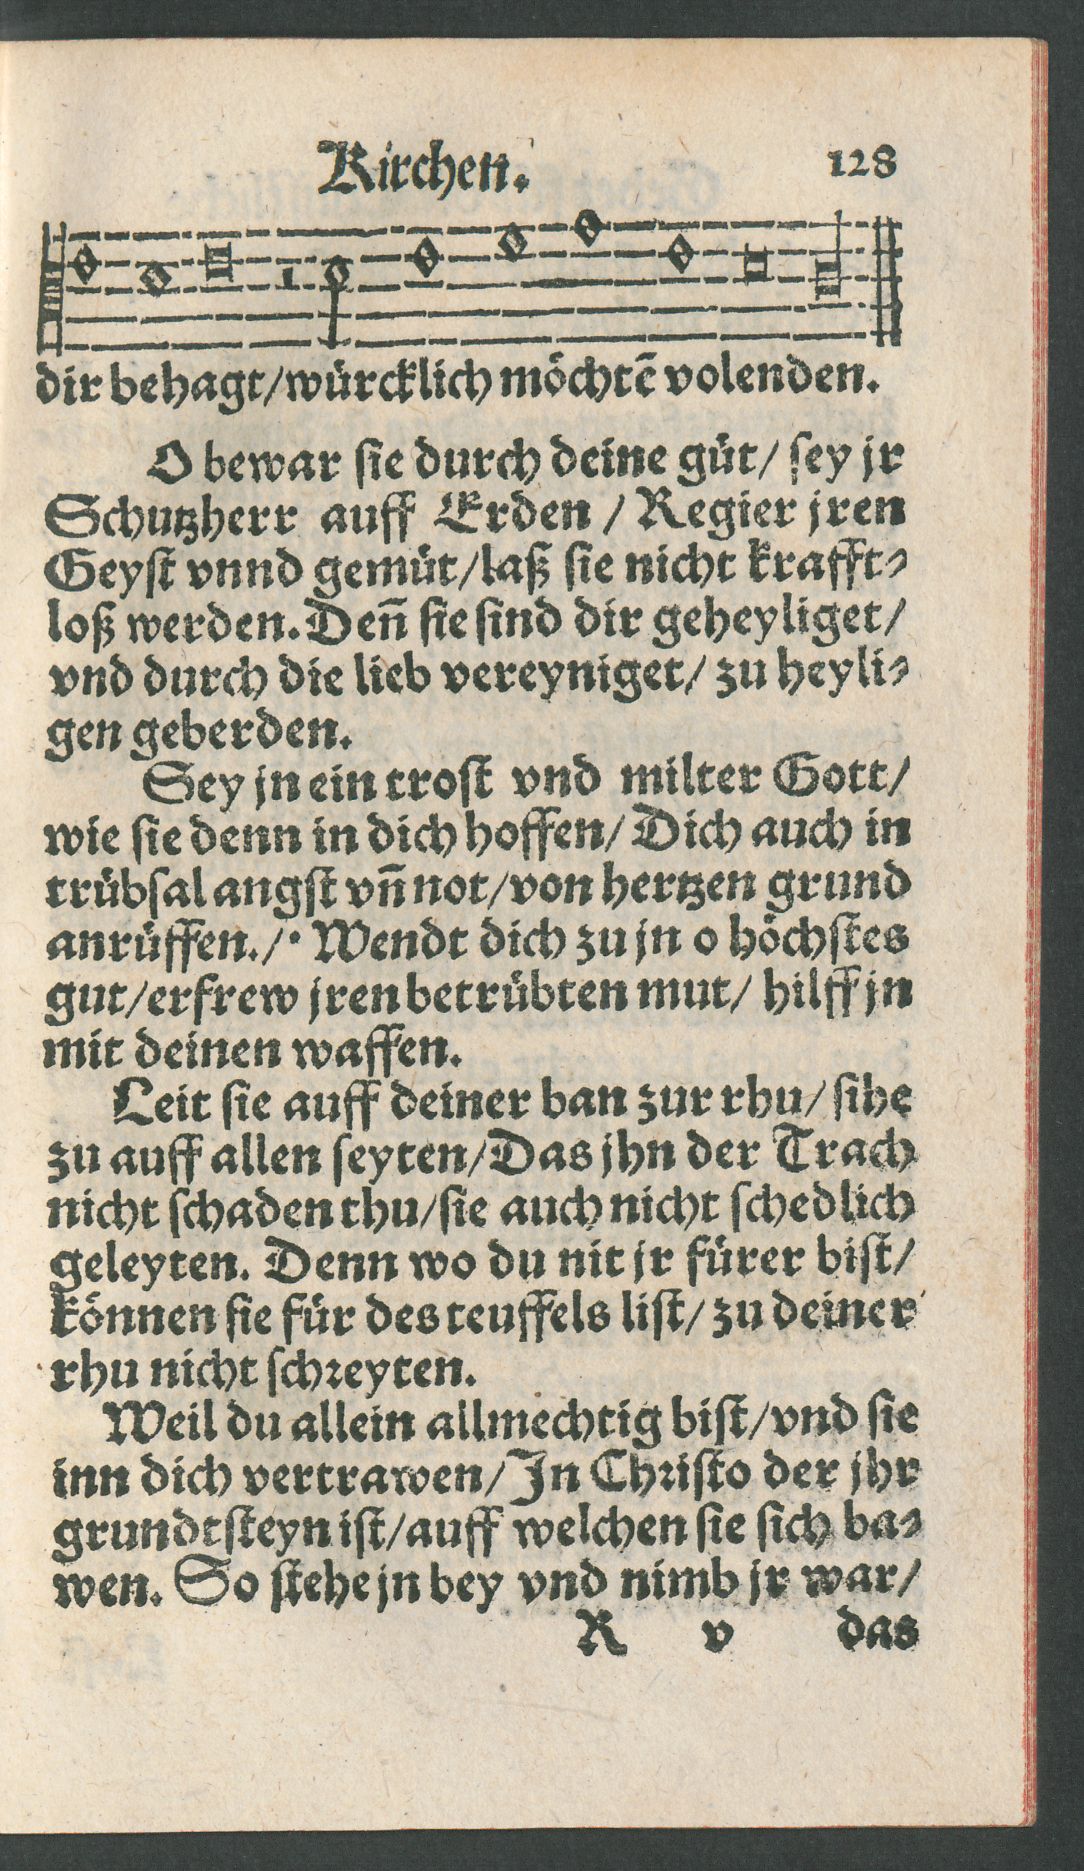 Kirchen. 128
dir behagt/würcklich möchtē volenden.
O bewar sie durch deine güt/ sey jr
Schutzherr auff Erden / Regier jren
Geyst vnnd gemüt/laß sie nicht krafft⸗
loß werden. Deñ sie sind dir geheyliget/
vnd durch die lieb vereyniget/ zu heyli⸗
gen geberden.
Sey jn ein trost vnd milter Gott/
wie sie denn in dich hoffen/ Dich auch in
trübsal angst vñ not/von hertzen grund
anrüffen./· Wendt dich zu jn o höchstes
gut/erfrew jren betrübten mut/ hilff jn
mit deinen waffen.
Leit sie auff deiner ban zur rhu/ sihe
zu auff allen seyten/Das jhn der Trach
nicht schaden thu/sie auch nicht schedlich
geleyten. Denn wo du nit jr fürer bist/
können sie für des teuffels list/ zu deiner
rhu nicht schreyten.
Weil du allein allmechtig bist/vnd sie
inn dich vertrawen/In Christo der jhr
grundtsteyn ist/auff welchen sie sich ba⸗
wen. So stehe jn bey vnd nimb jr war/
R v das